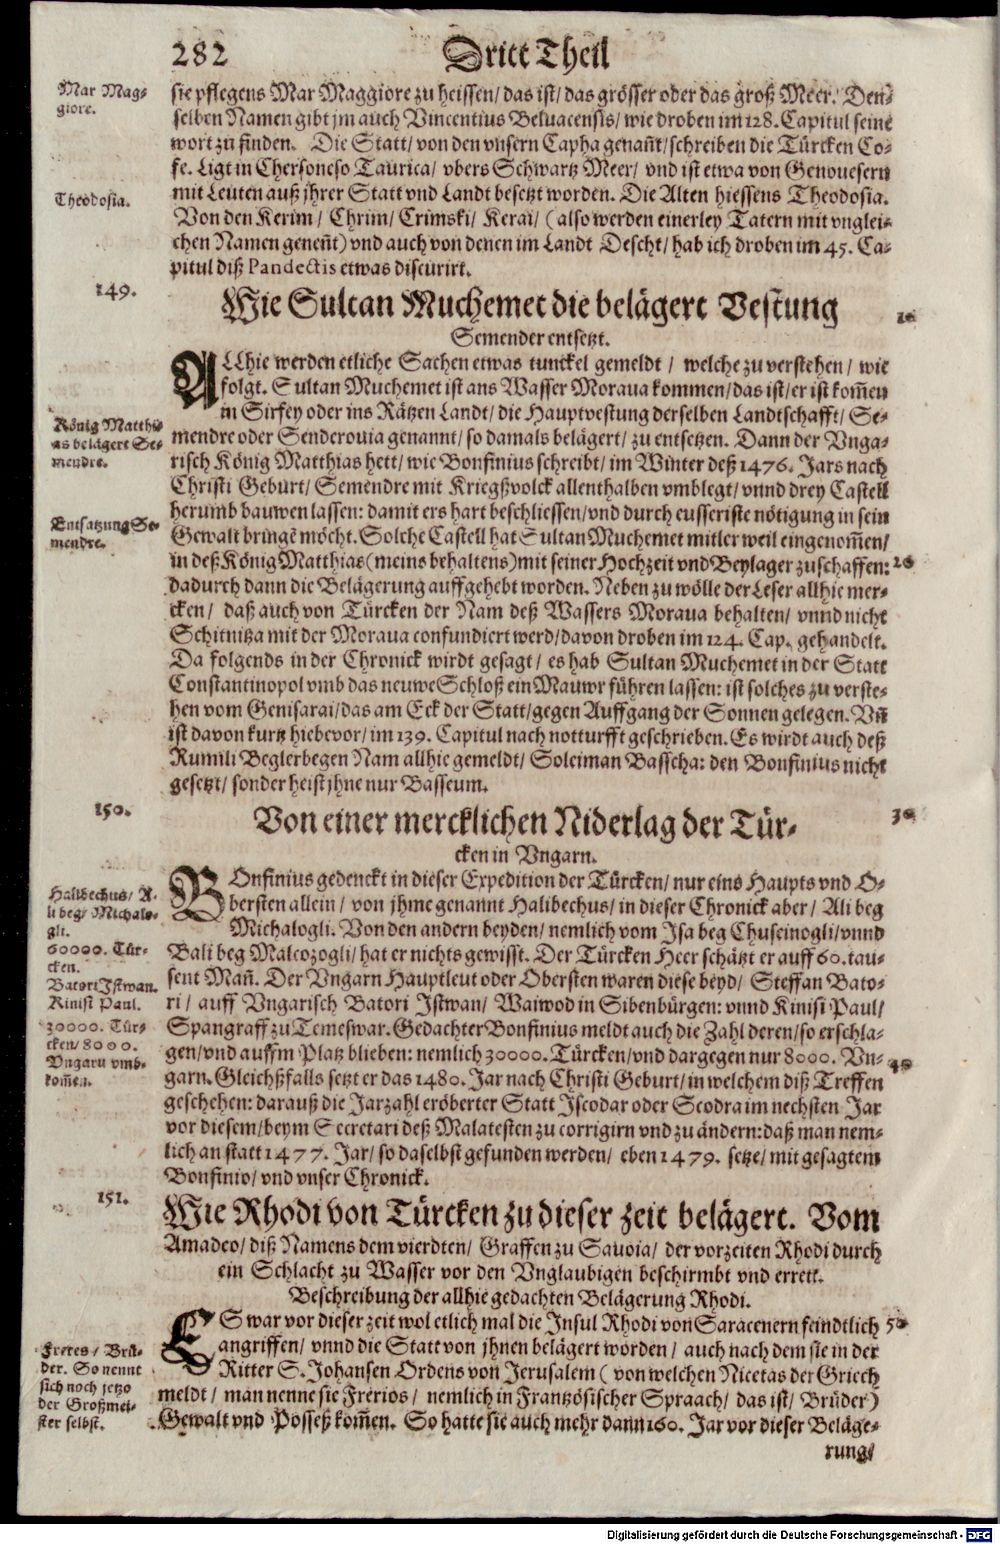 282 Dritt Theil
Mar Mag-
giore.
sie pflegens Mar Maggiore zu heissen/ das ist/ das grösser oder das groß Meer. Den-
selben Namen gibt jm auch Vincentius Beluacensis/ wie droben im 128. Capitul seine
wort zu finden. Die Statt/ von den vnsern Capha genañt/ schreiben die Türcken Co-
fe. Ligt in Chersoneso Taurica/ vbers Schwartz Meer/ vnd ist etwa von Genouesern
Theodosia.
mit Leuten auß jhrer Statt vnd Landt besetzt worden. Die Alten hiessens Theodosia.
Von den Kerim/ Chrim/ Crimski/ Kerai/ (also werden einerley Tatern mit vnglei-
chen Namen geneñt) vnd auch von denen im Landt Descht/ hab ich droben im 45. Ca-
pitul diß Pandectis etwas discurirt.
149.
Wie Sultan Muchemet die belägert Vestung
10
Semender entsetzt.
ALLhie werden etliche Sachen etwas tunckel gemeldt/ welche zu verstehen/ wie
folgt. Sultan Muchemet ist ans Wasser Moraua kommen/ das ist/ er ist kom̃en
in Sirfey oder ins Rätzen Landt/ die Hauptvestung derselben Landtschafft/ Se-
König Matthi-
as belägert Se-
mendre.
mendre oder Senderouia genannt/ so damals belägert/ zu entsetzen. Dann der Vnga-
risch König Matthias hett/ wie Bonfinius schreibt/ im Winter deß 1476. Jars nach
Christi Geburt/ Semendre mit Kriegßvolck allenthalben vmblegt/ vnnd drey Castell
herumb bauwen lassen: damit ers hart beschliessen/ vnd durch eusseriste nötigung in sein
Entsatzung Se-
mendre.
Gewalt bringẽ möcht. Solche Castell hat Sultan Muchemet mitler weil eingenom̃en/
in deß König Matthias (meins behaltens) mit seiner Hochzeit vnd Beylager zuschaffen:
20
dadurch dann die Belägerung auffgehebt worden. Neben zu wölle der Leser allhie mer-
cken/ daß auch von Türcken der Nam deß Wassers Moraua behalten/ vnnd nicht
Schitnitza mit der Moraua confundiert werd/ davon droben im 124. Cap. gehandelt.
Da folgends in der Chronick wirdt gesagt/ es hab Sultan Muchemet in der Statt
Constantinopol vmb das neuwe Schloß ein Mauwr führen lassen: ist solches zu verste-
hen vom Genisarai/ das am Eck der Statt/ gegen Auffgang der Sonnen gelegen. Vñ
ist davon kurtz hiebevor/ im 139. Capitul nach notturfft geschrieben. Es wirdt auch deß
Rumili Beglerbegen Nam allhie gemeldt/ Soleiman Basscha: den Bonfinius nicht
gesetzt/ sonder heist jhne nur Basseum.
150.
Von einer mercklichen Niderlag der Tür-
30
cken in Vngarn.
Halibechus/ A-
li beg/ Michalo-
gli.
BOnfinius gedenckt in dieser Expedition der Türcken/ nur eins Haupts vnd O-
bersten allein/ von jhme genannt Halibechus/ in dieser Chronick aber/ Ali beg
Michalogli. Von den andern beyden/ nemlich vom Isa beg Chuseinogli/ vnnd
60000. Tür-
cken.
Bali beg Malcozogli/ hat er nichts gewisst. Der Türcken Heer schätzt er auff 60. tau-
sent Mañ. Der Vngarn Hauptleut oder Obersten waren diese beyd/ Steffan Bato-
Batori Istwan.
Kinisi Paul.
ri/ auff Vngarisch Batori Istwan/ Waiwod in Sibenbürgen: vnnd Kinisi Paul/
30000. Tür-
cken/ 8000.
Vngarn vmb-
kom̃en.
Spangraff zu Temeswar. Gedachter Bonfinius meldt auch die Zahl deren/ so erschla-
gen/ vnd auffm Platz blieben: nemlich 30000. Türcken/ vnd dargegen nur 8000. Vn-
40
garn. Gleichßfalls setzt er das 1480. Jar nach Christi Geburt/ in welchem diß Treffen
geschehen: darauß die Jarzahl eröberter Statt Iscodar oder Scodra im nechsten Jar
vor diesem/ beym Secretari deß Malatesten zu corrigirn vnd zu ändern: daß man nem-
lich an statt 1477. Jar/ so daselbst gefunden werden/ eben 1479. setze/ mit gesagtem
Bonfinio/ vnd vnser Chronick.
151.
Wie Rhodi von Türcken zu dieser zeit belägert. Vom
Amadeo/ diß Namens dem vierdten/ Graffen zu Sauoia/ der vorzeiten Rhodi durch
ein Schlacht zu Wasser vor den Vnglaubigen beschirmbt vnd errett.
Beschreibung der allhie gedachten Belägerung Rhodi.
ES war vor dieser zeit wol etlich mal die Insul Rhodi von Saracenern feindtlich
50
angriffen/ vnnd die Statt von jhnen belägert worden/ auch nach dem sie in der
Freres/ Brü-
der. So nennt
sich noch jetzo
der Großmei-
ster selbst.
Ritter S. Johansen Ordens von Jerusalem (von welchen Nicetas der Griech
meldt/ man nenne sie Frerios/ nemlich in Frantzösischer Spraach/ das ist/ Brüder)
Gewalt vnd Posseß kom̃en. So hatte sie auch mehr dann 160. Jar vor dieser Beläge-
rung/
Digitalisierung gefördert durch die Deutsche Forschungsgemeinschaft - DFG